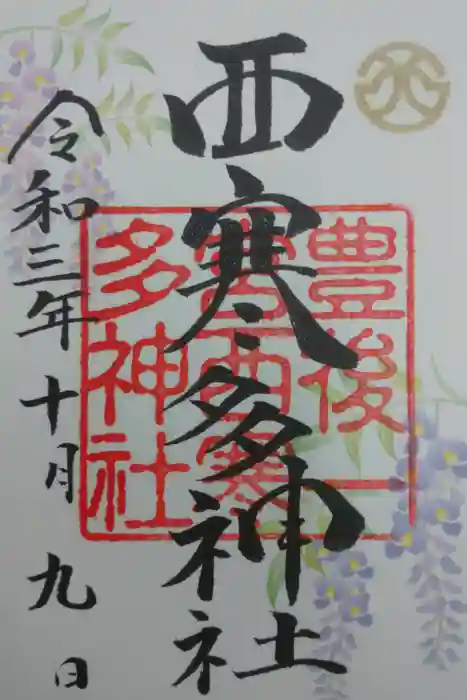 西寒多神社
令和三年十月九日
豊後一
宮西寒
多神社